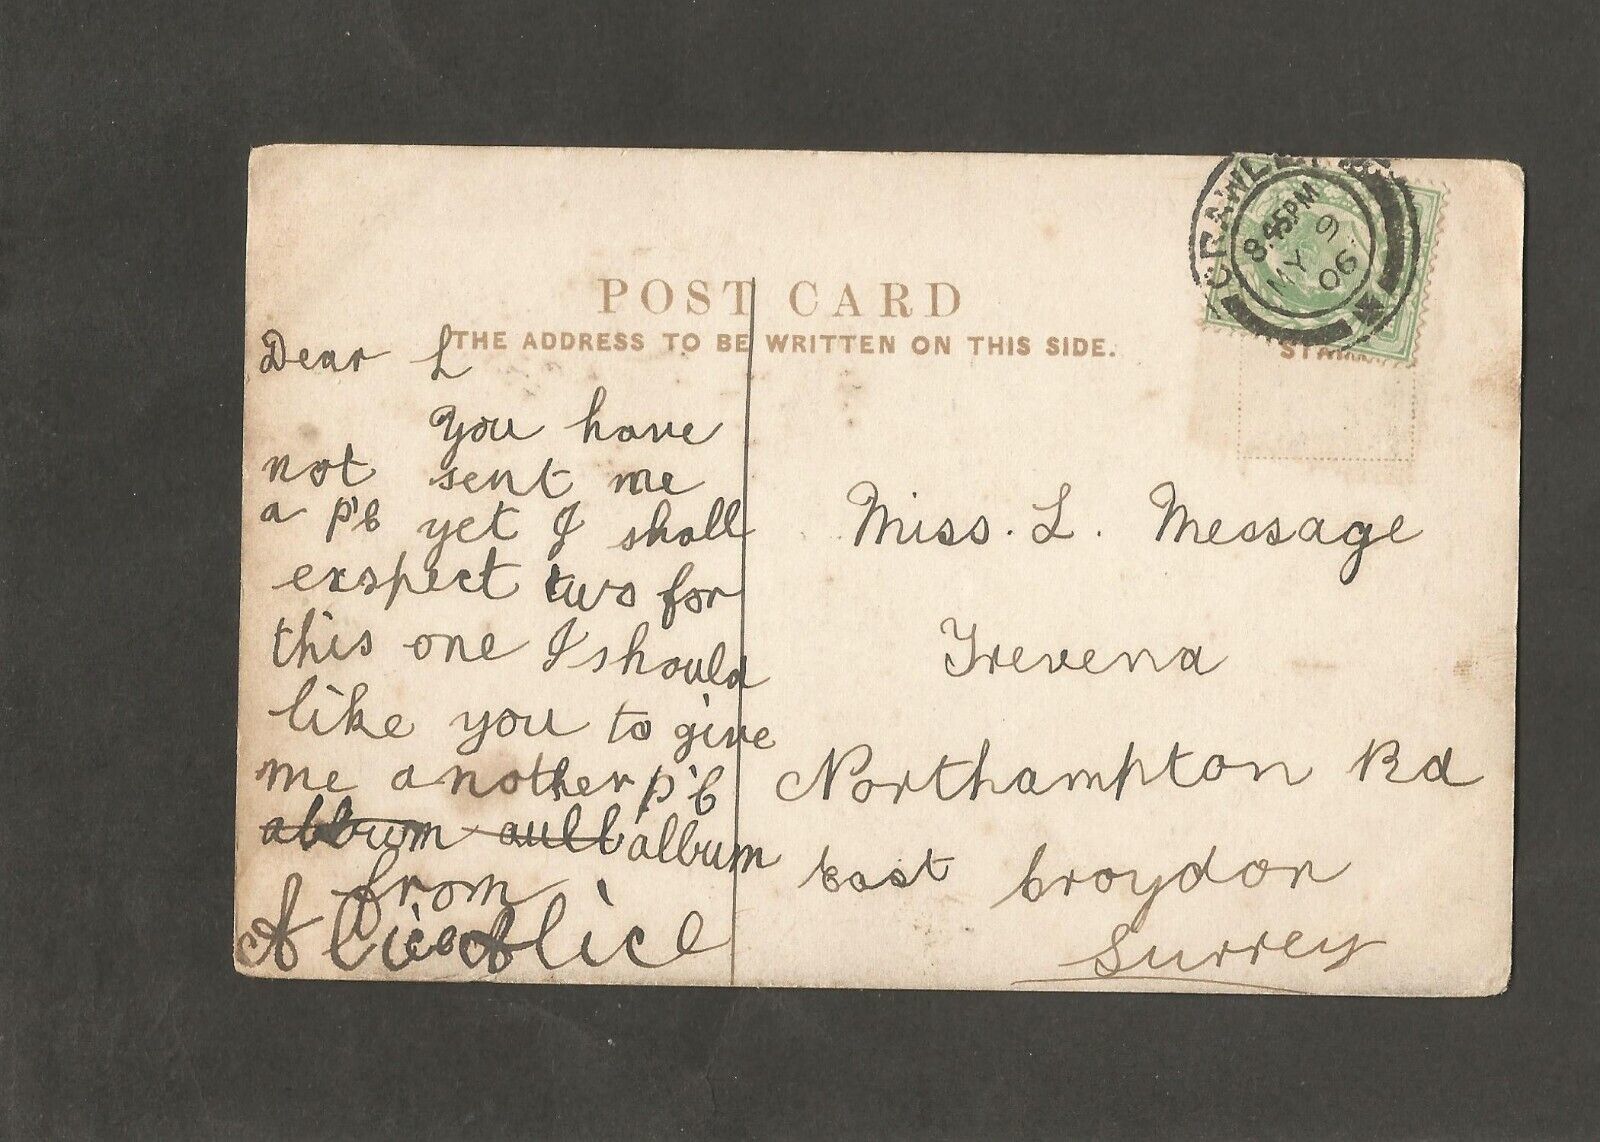 POST CARD
THE ADDRESS TO BE WRITTEN ON THIS SIDE.
CRAWLEY
8.45PM
MY 9
06
Dear L
You have
not sent me
a p'c yet I shall
exspect two for
this one I should
like you to give
me another p'c
album
from
Alice Alice
Miss. L. Message
Trevena
Northampton Rd
East Croydon
Surrey